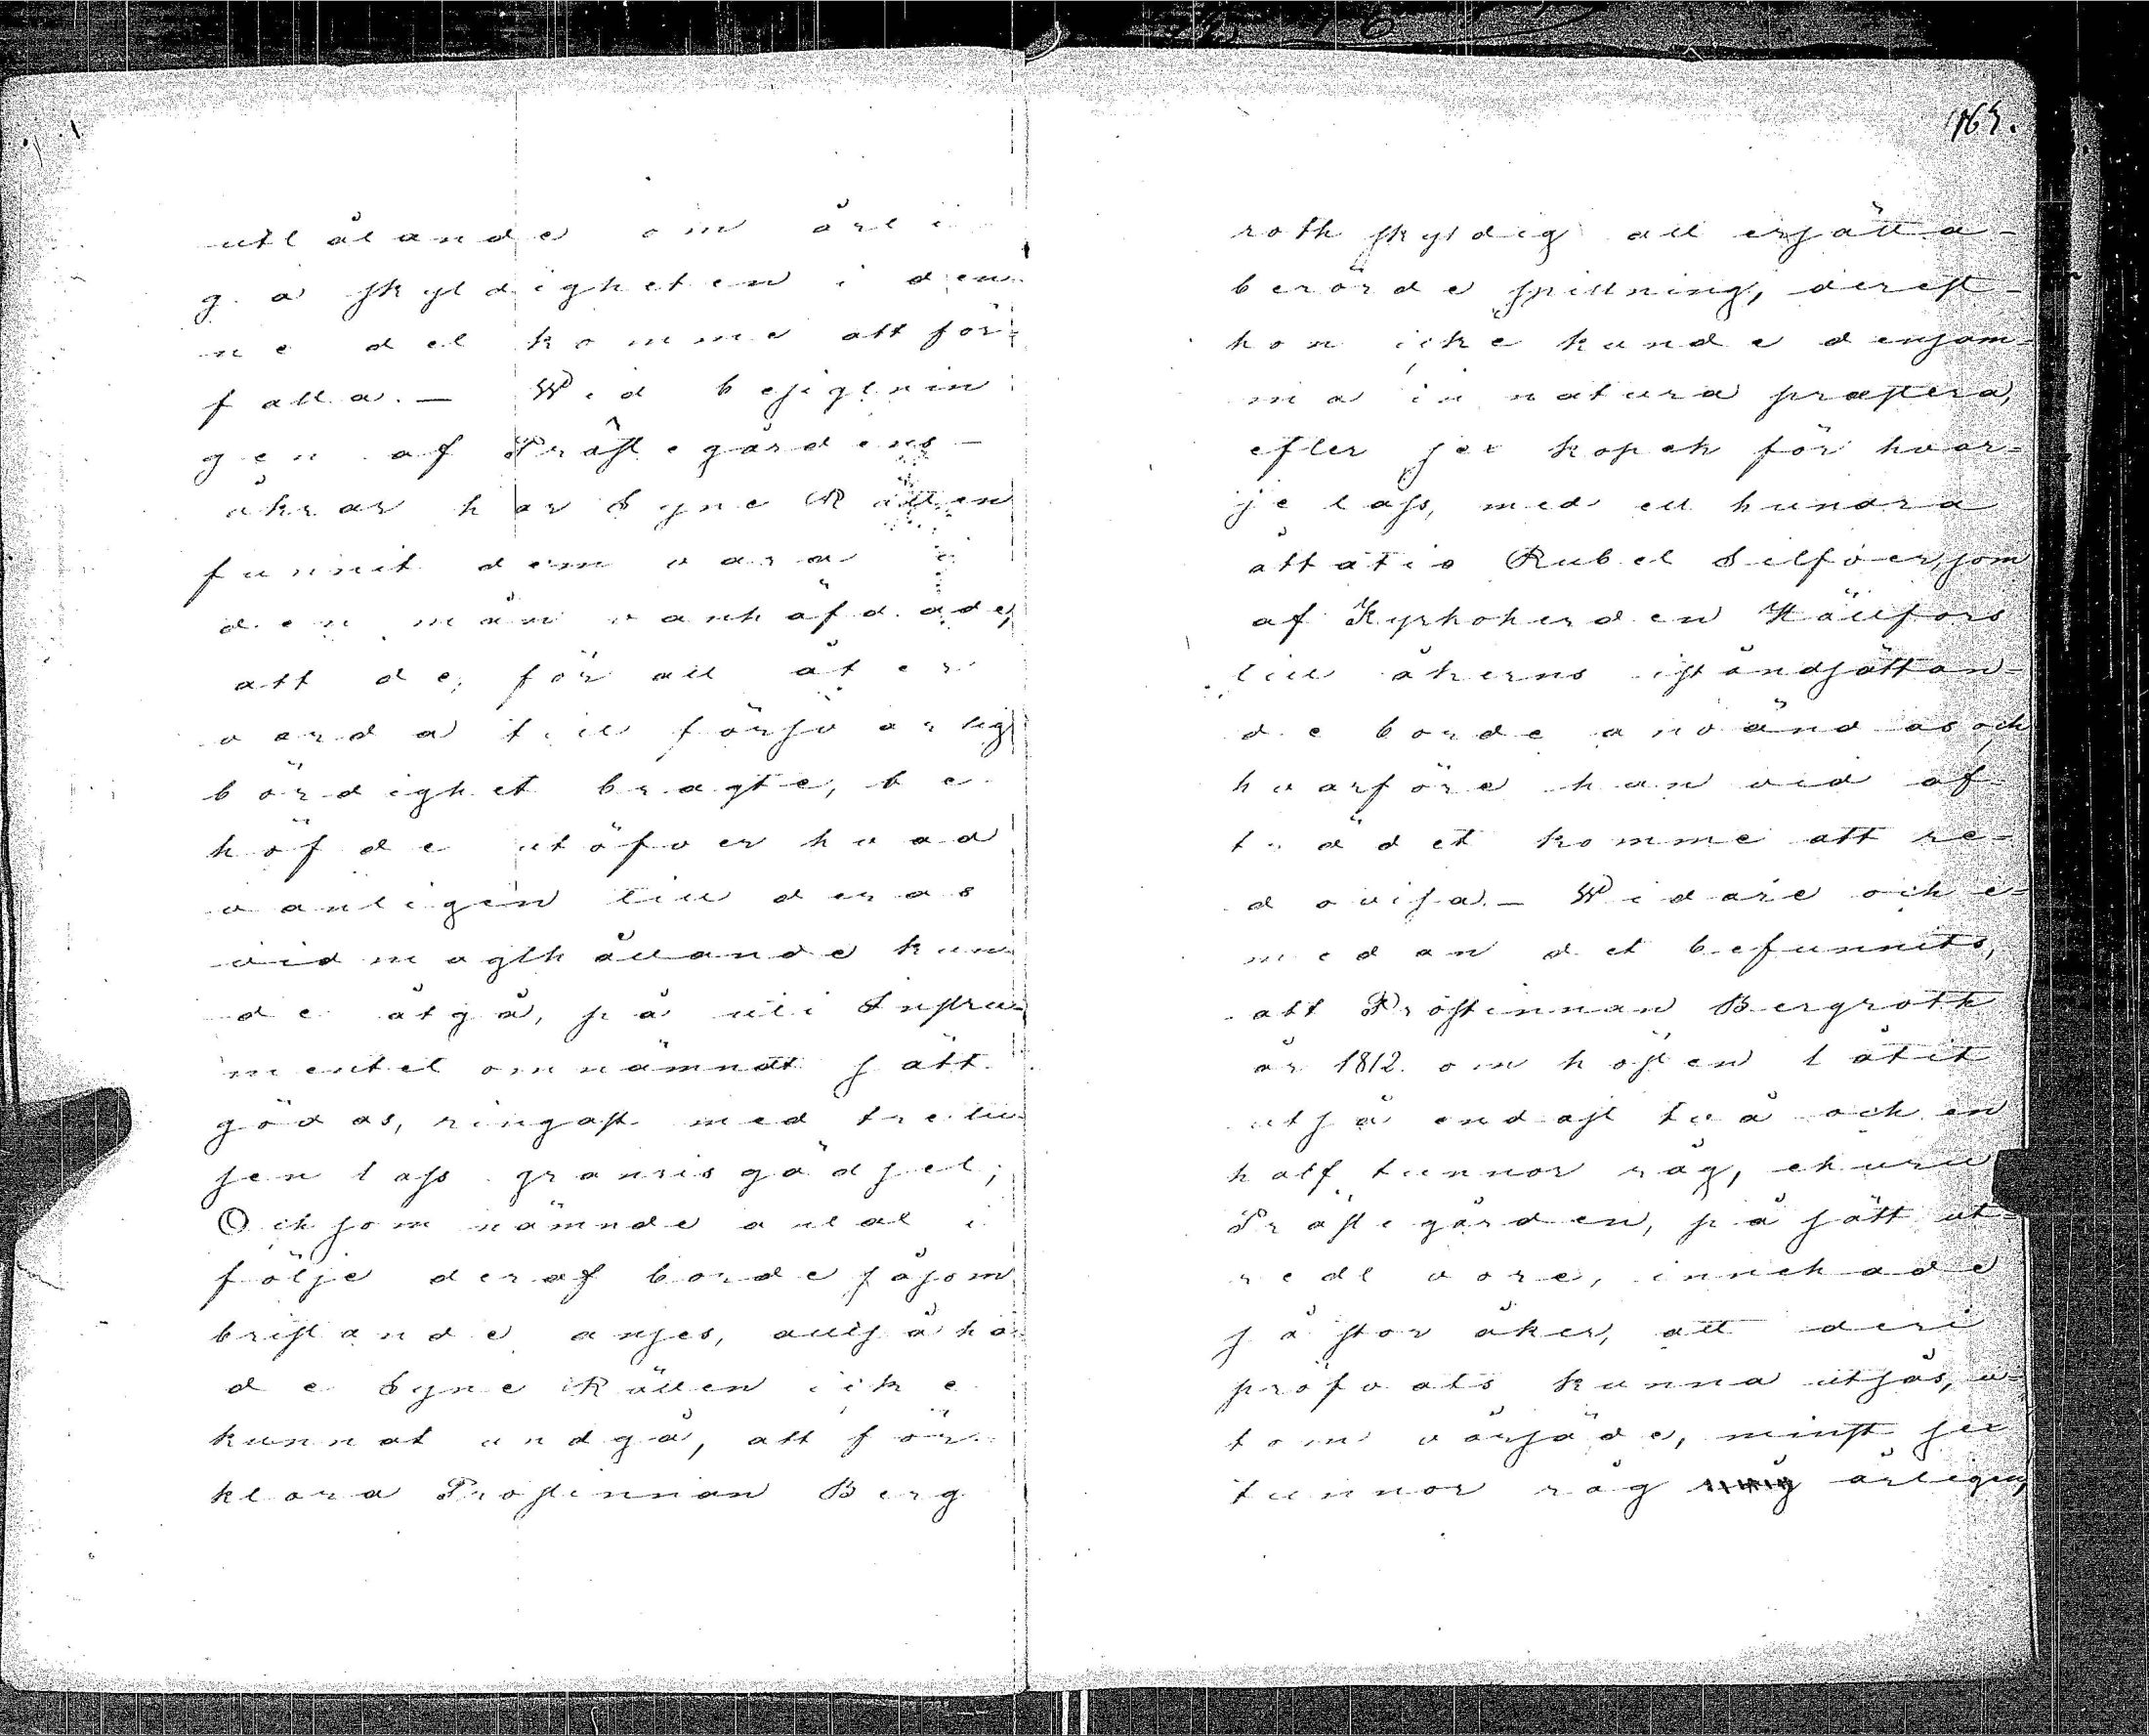 utlåtande om årli
ga skyldigheten i den
ne del komme att för
falla. — Wid besigtnin
gen af Prästegårdens —
åkrar har Syne Rätten
funnit dem vara i
den mån vanhäfdade,
att de, för att åter
varda till försvarlig
bördighet bragte, be
höfde utöfver hvad
vanligen till deras
vidmagthållande kun
de åtgå, på uti Instru-
mentet omnämndt sätt
gödas, ringast med tretu
sen lass granrisgödsel;
Och som nämnde antal i
följe deraf borde såsom
bristande anses, alltså ha
de Syne Rätten icke
kunnat undgå, att för
klara Prostinnan Berg
165.
roth skyldig att ersätta —
berörde spillning, derest —
hon icke kunde densam-
ma in natura præstera,
efter sex kopek för hvar-
je lass, med ett hundra
åttatio Rubel Silfver, som
af Kyrkoherden Hällfors
till åkerns iståndsättan-
de borde användas och
hvarföre han vid af-
trädet komme att re-
dovisa. — Widare och e-
medan det befunnits,
att Prostinnan Bergroth
år 1812 om hösten låtit
utså endast två och en
half tunnor råg, ehuru
Prästegården, på sätt ut-
redt vore, innehade
så stor åker, att deri
pröfvats kunna utsås, u-
tom vårsäde, minst sex
tunnor råg årligen,